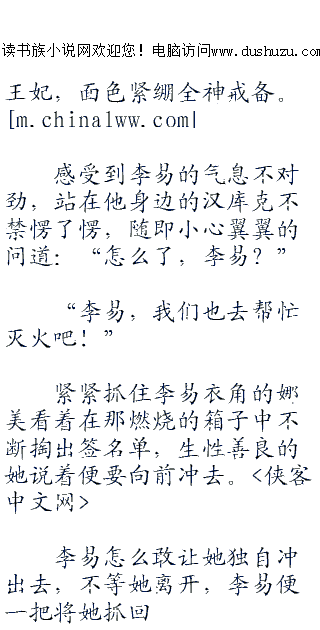 读书族小说网欢迎您！电脑访问www.dushuzu.com
王妃，面色紧绷全神戒备。
[m.chinalww.com]
感受到李易的气息不对
劲，站在他身边的汉库克不
禁愣了愣，随即小心翼翼的
问道：“怎么了，李易？”
“李易，我们也去帮忙
灭火吧！”
紧紧抓住李易衣角的娜
美看着在那燃烧的箱子中不
断掏出签名单，生性善良的
她说着便要向前冲去。<侠客
中文网>
李易怎么敢让她独自冲
出去，不等她离开，李易便
一把将她抓回